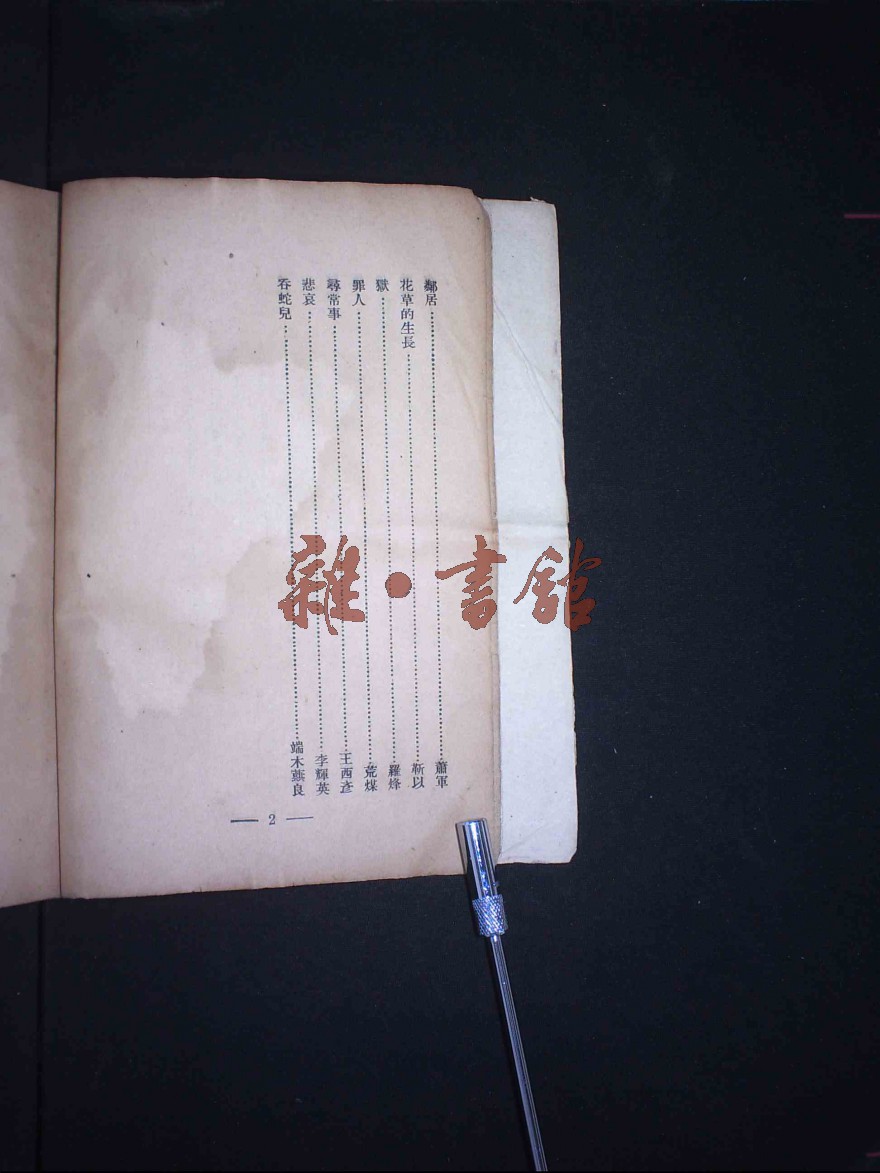 鄰居……蕭軍
花草的生長……靳以
獄……羅烽
罪人……荒煤
尋常事……王西彥
悲哀……李輝英
吞蛇兒……端木蕻良
— 2 —
雜·書館